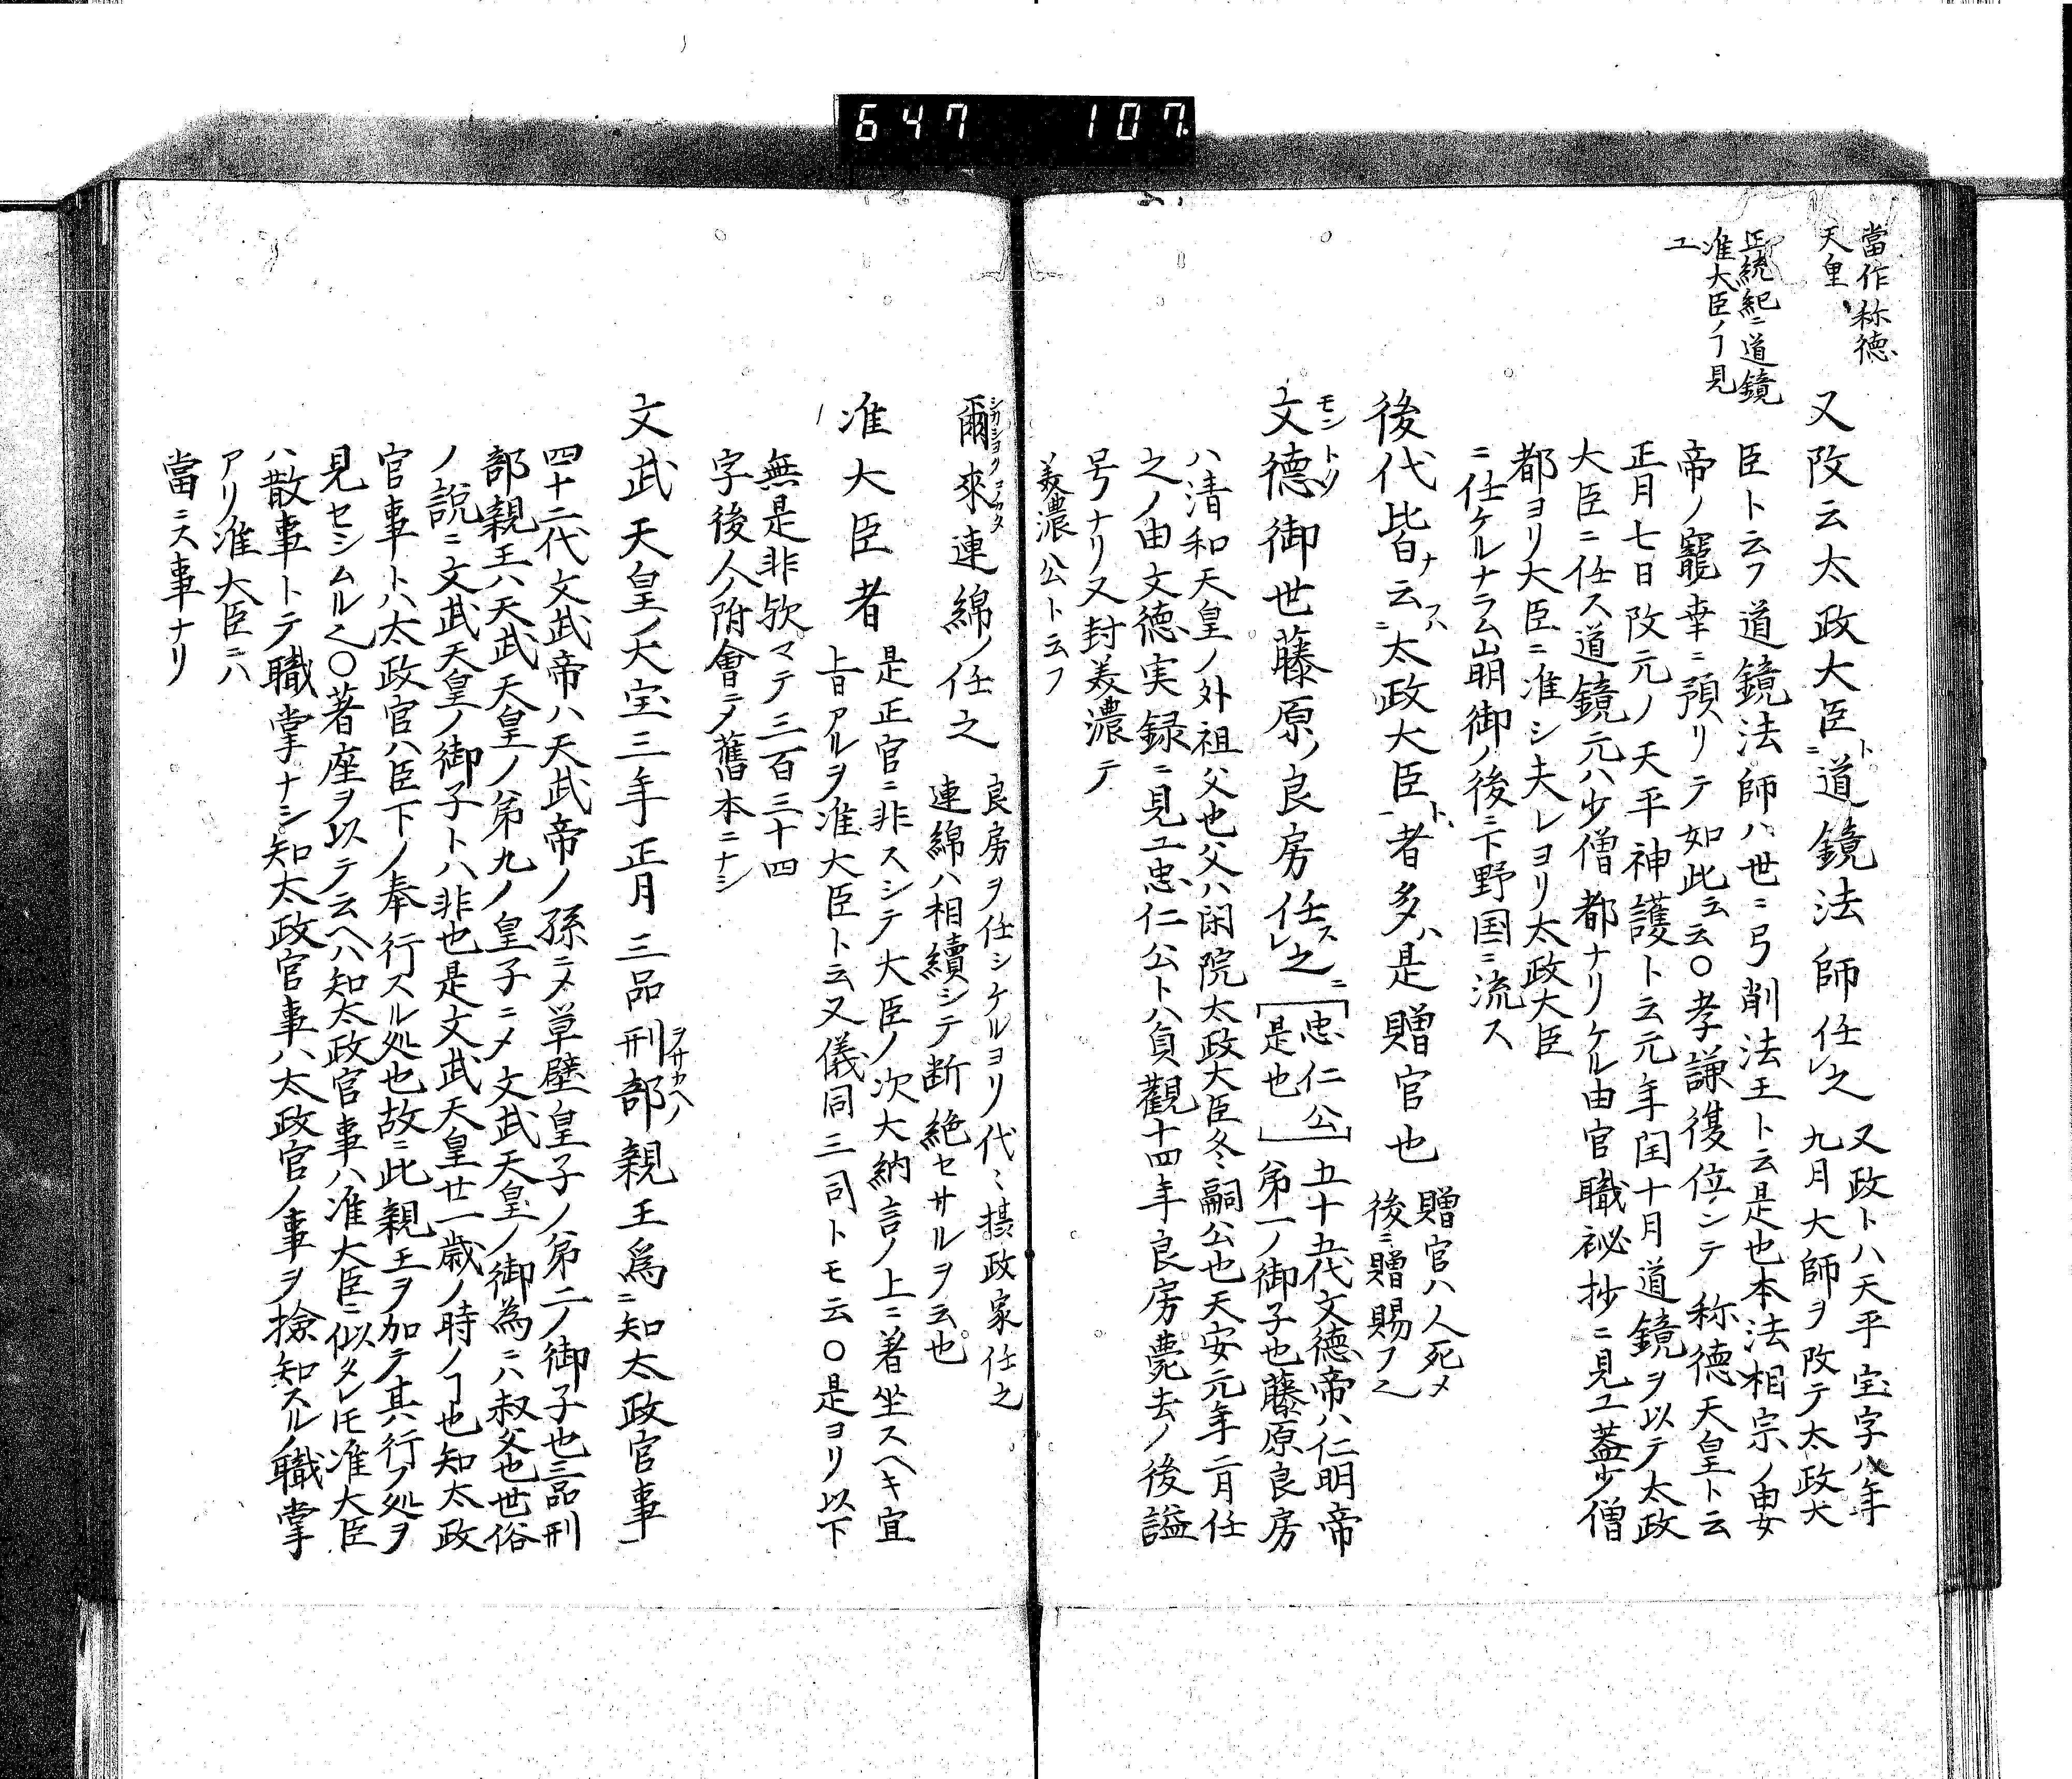 647 107
當作称徳
天皇
正統紀ニ道鏡
准大臣ノヿ見
ユ
又改云太政大臣ニト道鏡法師任レ之
又政トハ天平宝字八年
九月大師ヲ改テ太政大
臣ト云フ道鏡法師ハ世ニ弓削法王ト云是也本法相宗ノ
帝ノ寵幸ニ預リテ如此云云〇孝謙復位シテ称徳天皇ト云
正月七日改元ノ天平神護ト云元年閏十月道鏡ヲ以テ太政
大臣ニ任ス道鏡元ハ少僧都ナリケル由官職祕抄ニ見エ蓋少僧
都ヨリ大臣ニ准シ夫レヨリ太政大臣
ニ任ケルナラム崩御ノ後ニ下野国ニ流ス
後代皆ナ云ニ太政大臣一ト者多ハ是贈官也
贈官ハ人死メ
後ニ贈賜フ之
文徳モントク御世藤原ノ良房任スレ之ニ
忠仁公
是也
五十五代文徳帝ハ仁明帝
第一ノ御子也藤原良房
ハ清和天皇ノ外祖父也父ハ閑院太政大臣冬嗣公也天安元年二月任
之ノ由文徳実録ニ見エ忠仁公トハ貞觀十四年良房薨去ノ後謚
号ナリ又封美濃テ
美濃公ト云フ
爾來シカシヨリコノカタ連綿ノ任之
良房ヲ任シケルヨリ代々摂政家任之
連綿ハ相續シテ断絶セサルヲ云也
准大臣者
是正官ニ非スシテ大臣ノ次大納言ノ上ニ著坐スヘキ宜
旨アルヲ准大臣ト云又儀同三司トモ云〇是ヨリ以下
無是非歟マテ三百三十四
字後人ノ附會ニテ舊本ニナシ
文武天皇ノ大宝三年正月三品刑部ヲサカヘノ親王爲ニ知太政官事一
四十二代文武帝ハ天武帝ノ孫ニメ草壁皇子ノ第二ノ御子也三品刑
部親王ハ天武天皇ノ第九ノ皇子ニメ文武天皇ノ御為ニハ叔父也世俗
ノ説ニ文武天皇ノ御子トハ非也是文武天皇廿一歳ノ時ノヿ也知太政
官事トハ太政官ハ臣下ノ奉行スル処也故ニ此親王ヲ加テ其行フ処ヲ
見セシムル之〇著座ヲ以テ云ヘハ知太政官事ハ准大臣ニ似タレ𪜈准大臣
ハ散事トテ職掌ナシ知太政官事ハ太政官ノ事ヲ撿知スルノ職掌
アリ准大臣ニハ
當ニス事ナリ